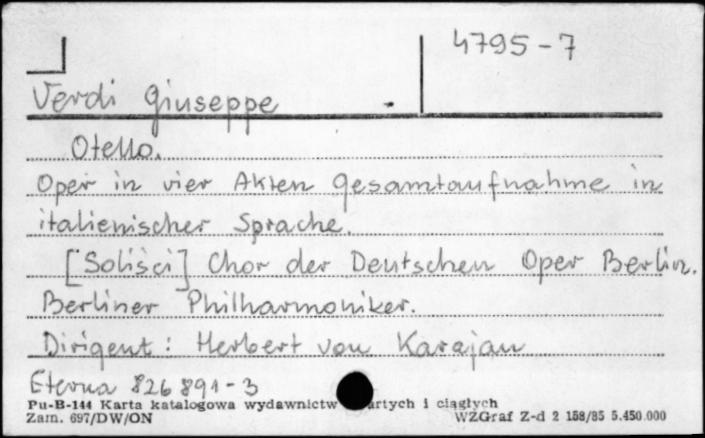 4795-7
Verdi Giuseppe
Otello.
Oper in vier Akten Gesamtaufnahme in
italienischer Sprache.
[Soliści] Chor der Deutschen Oper Berlin.
Berliner Philharmoniker.
Dirigent: Herbert von Karajan
Eterna 826 891-3
Pu-B-144 Karta katalogowa wydawnictw artych i ciągłych
Zam. 697/DW/ON WZGraf Z-d 2 158/85 5.450.000